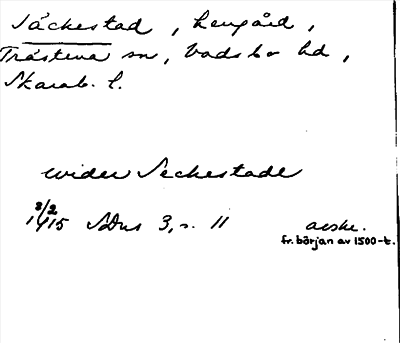 Säckestad, hemgård,
Trästena sn, Vadsbo hd,
Skarab. l.
widen Seckestade
8/2 1415 SDns 3, s. 11 avskr.
fr. början av 1500-t.